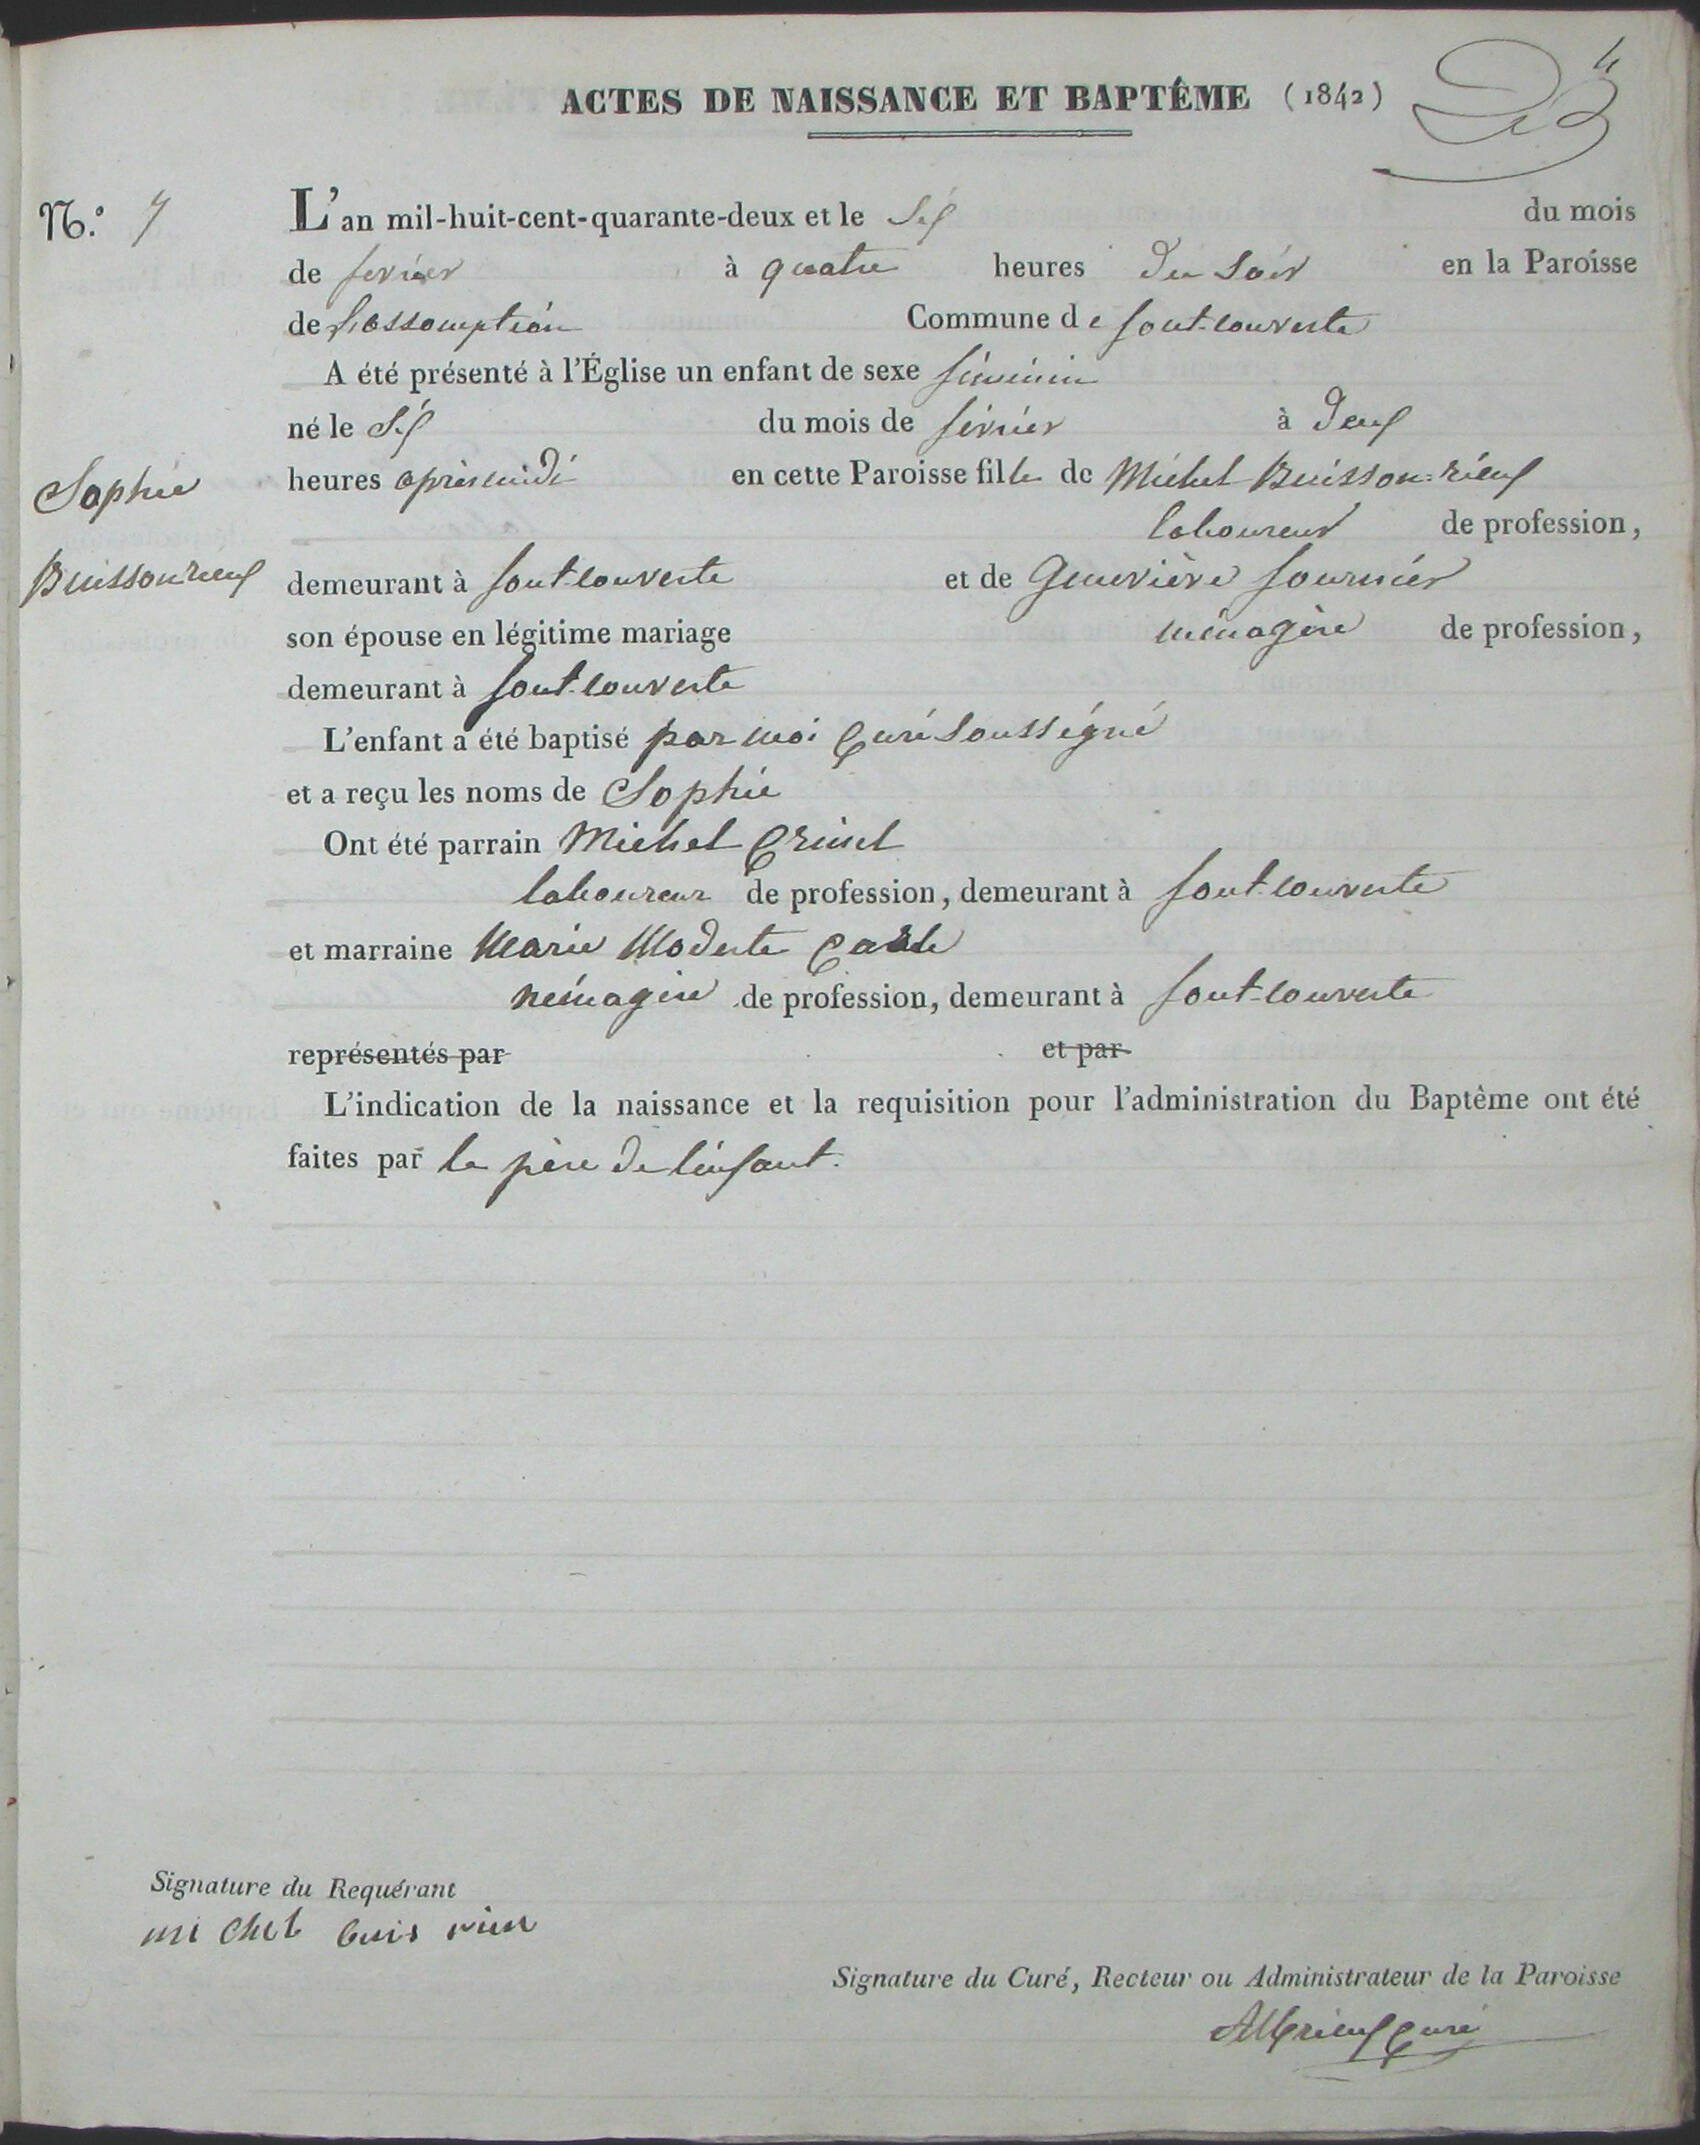 4
ACTES DE NAISSANCE ET BAPTÊME (1842)
N.º 7
L'an mil-huit-cent-quarante-deux et le Six du mois
de fevrier à quatre heures du soir en la Paroisse
de l'assomption Commune de font-couverte
A été présenté à l'Église un enfant de sexe féminin
né le Six du mois de février à deux
Sophie
heures après midi en cette Paroisse fille de Michel Buisson-rieux
laboureur de profession,
Buissonrieux
demeurant à font-couverte et de Geneviève fournier
son épouse en légitime mariage ménagère de profession,
demeurant à font-couverte
L'enfant a été baptisé par moi Curé soussigné
et a reçu les noms de Sophie
Ont été parrain Michel
laboureur de profession, demeurant à font-couverte
et marraine Marie Modeste
ménagère de profession, demeurant à font-couverte
représentés par et par
L'indication de la naissance et la requisition pour l'administration du Baptême ont été
faites par le père de l'enfant.
Signature du Requérant
mi chel buis rieu
Signature du Curé, Recteur ou Administrateur de la Paroisse
Curé